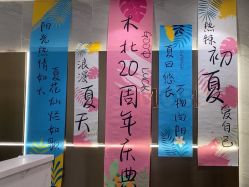 阳光热情如火
夏花灿烂如歌
浪漫夏天
GOOD LUCK
木北20周年庆典
夏日悠长
万物向阳
热辣
初夏
爱自己